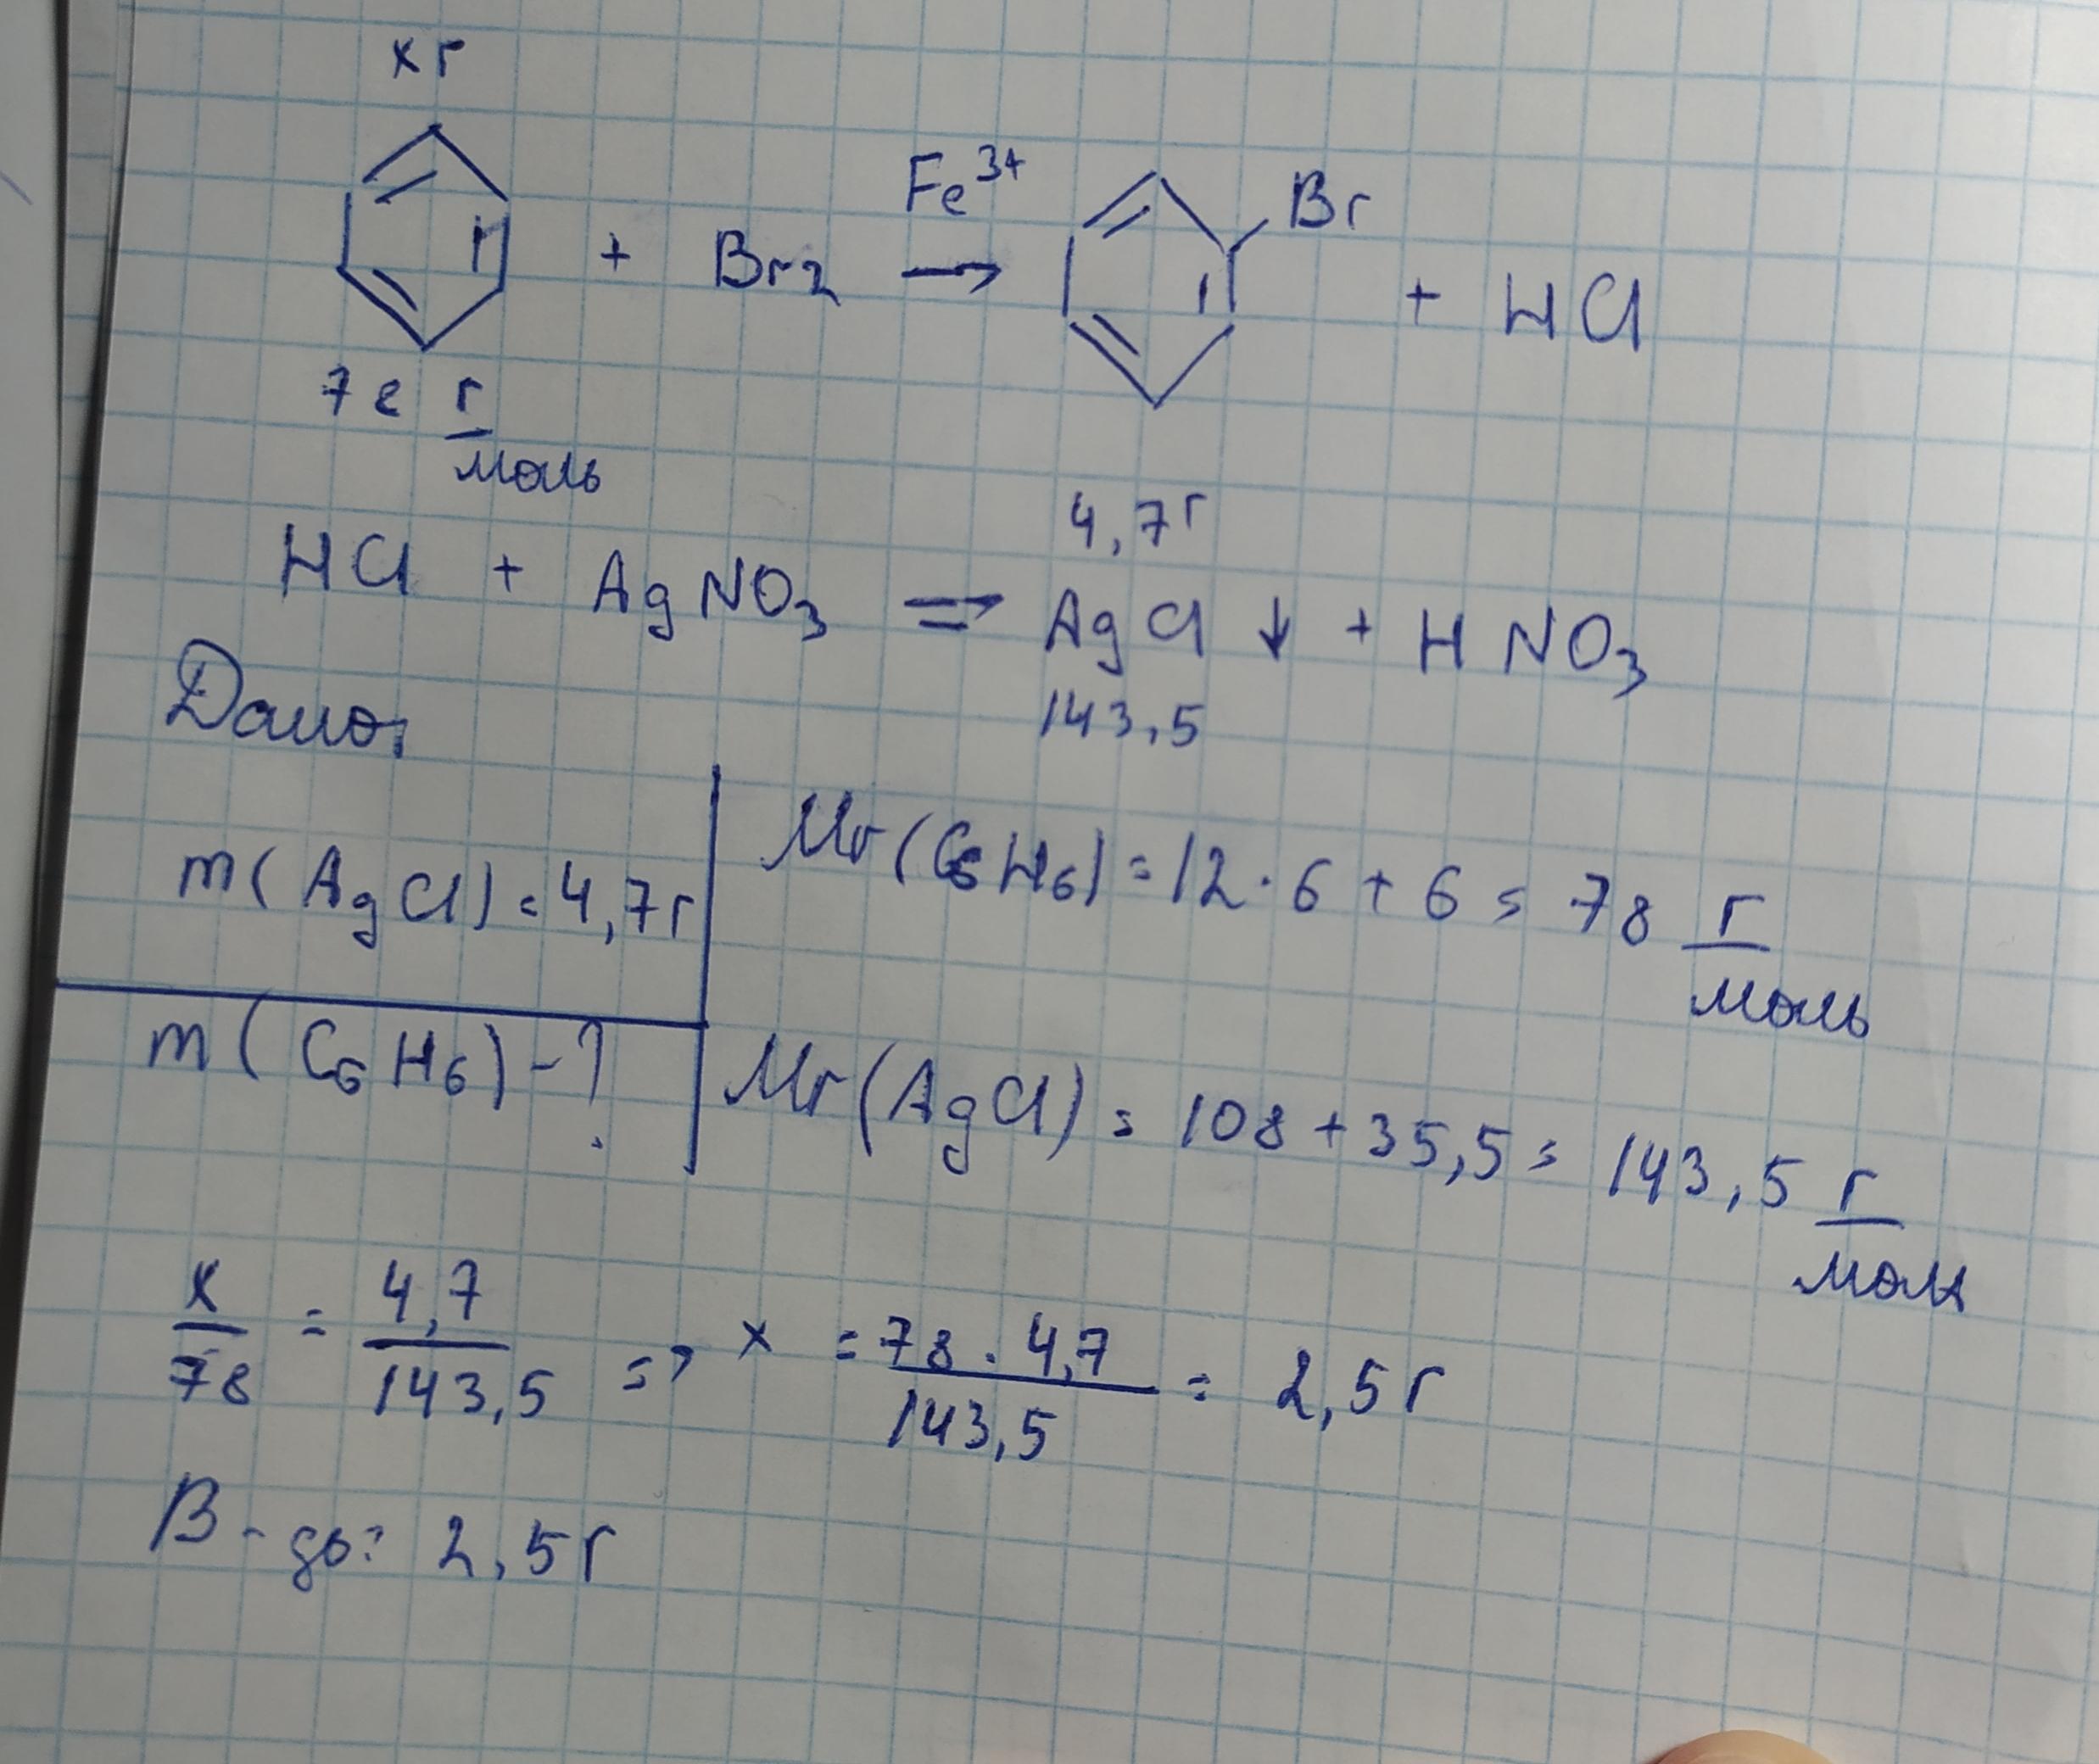 x г
Fe³⁺
+ Br₂ → Br + HCl
78 г/моль
4,7г
HCl + AgNO₃ => AgCl ↓ + HNO₃
143,5
Дано:
m(AgCl) = 4,7г
Mr(C₆H₆) = 12·6 + 6 = 78 г/моль
m(C₆H₆) - ?
Mr(AgCl) = 108 + 35,5 = 143,5 г/моль
x/78 = 4,7/143,5 => x = 78·4,7/143,5 = 2,5г
В-дь: 2,5г